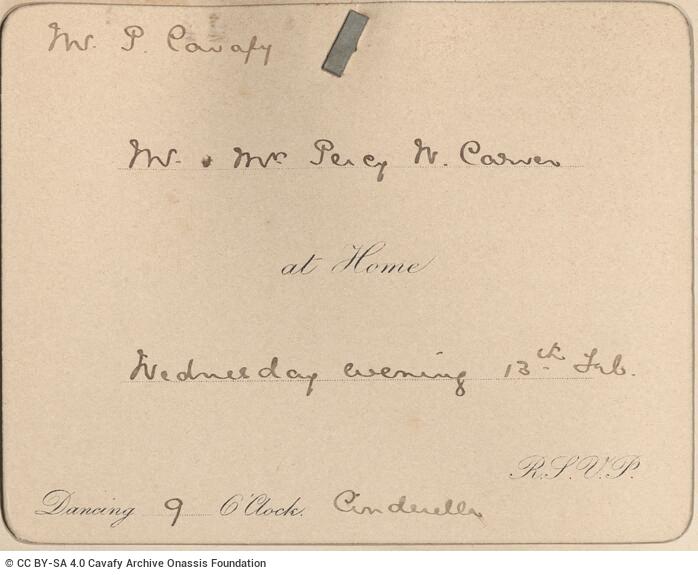 Mr. P. Cavafy
Mr. & Mrs Percy W. Carver
at Home
Wednesday evening 13th Feb.
R.S.V.P.
Dancing 9 O'Clock. Cinderella
© CC BY-SA 4.0 Cavafy Archive Onassis Foundation